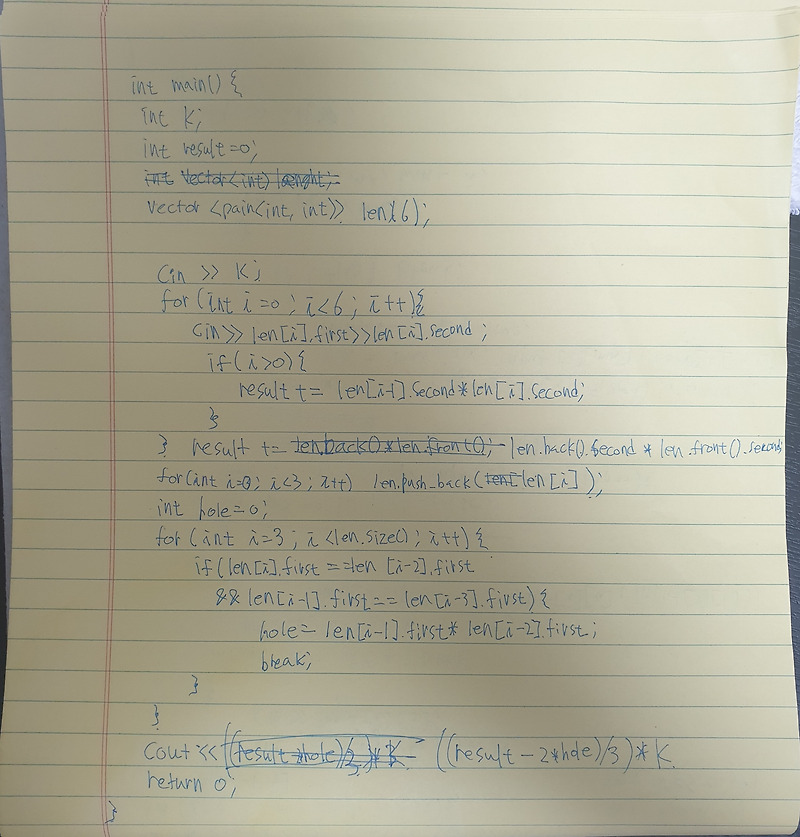 int main() {
int K;
int result=0;
int vector<int> lenght;
vector <pain<int, int>> len(6);
cin >> K;
for (int i=0; i<6; i++){
cin>> len[i].first>>len[i].second;
if(i>0){
result += len[i-1].second*len[i].second;
}
} result += len.back()*len.front(); len.back().second * len.front().second;
for(int i=0; i<3; i++) len.push_back(len[ len[i]);
int hole=0;
for (int i=3; i<len.size(); i++){
if(len[i].first==len[i-2].first
&& len[i-1].first==len[i-3].first){
hole= len[i-1].first* len[i-2].first;
break;
}
}
cout<< ((result-2*hole)/3)*K
return 0;
}